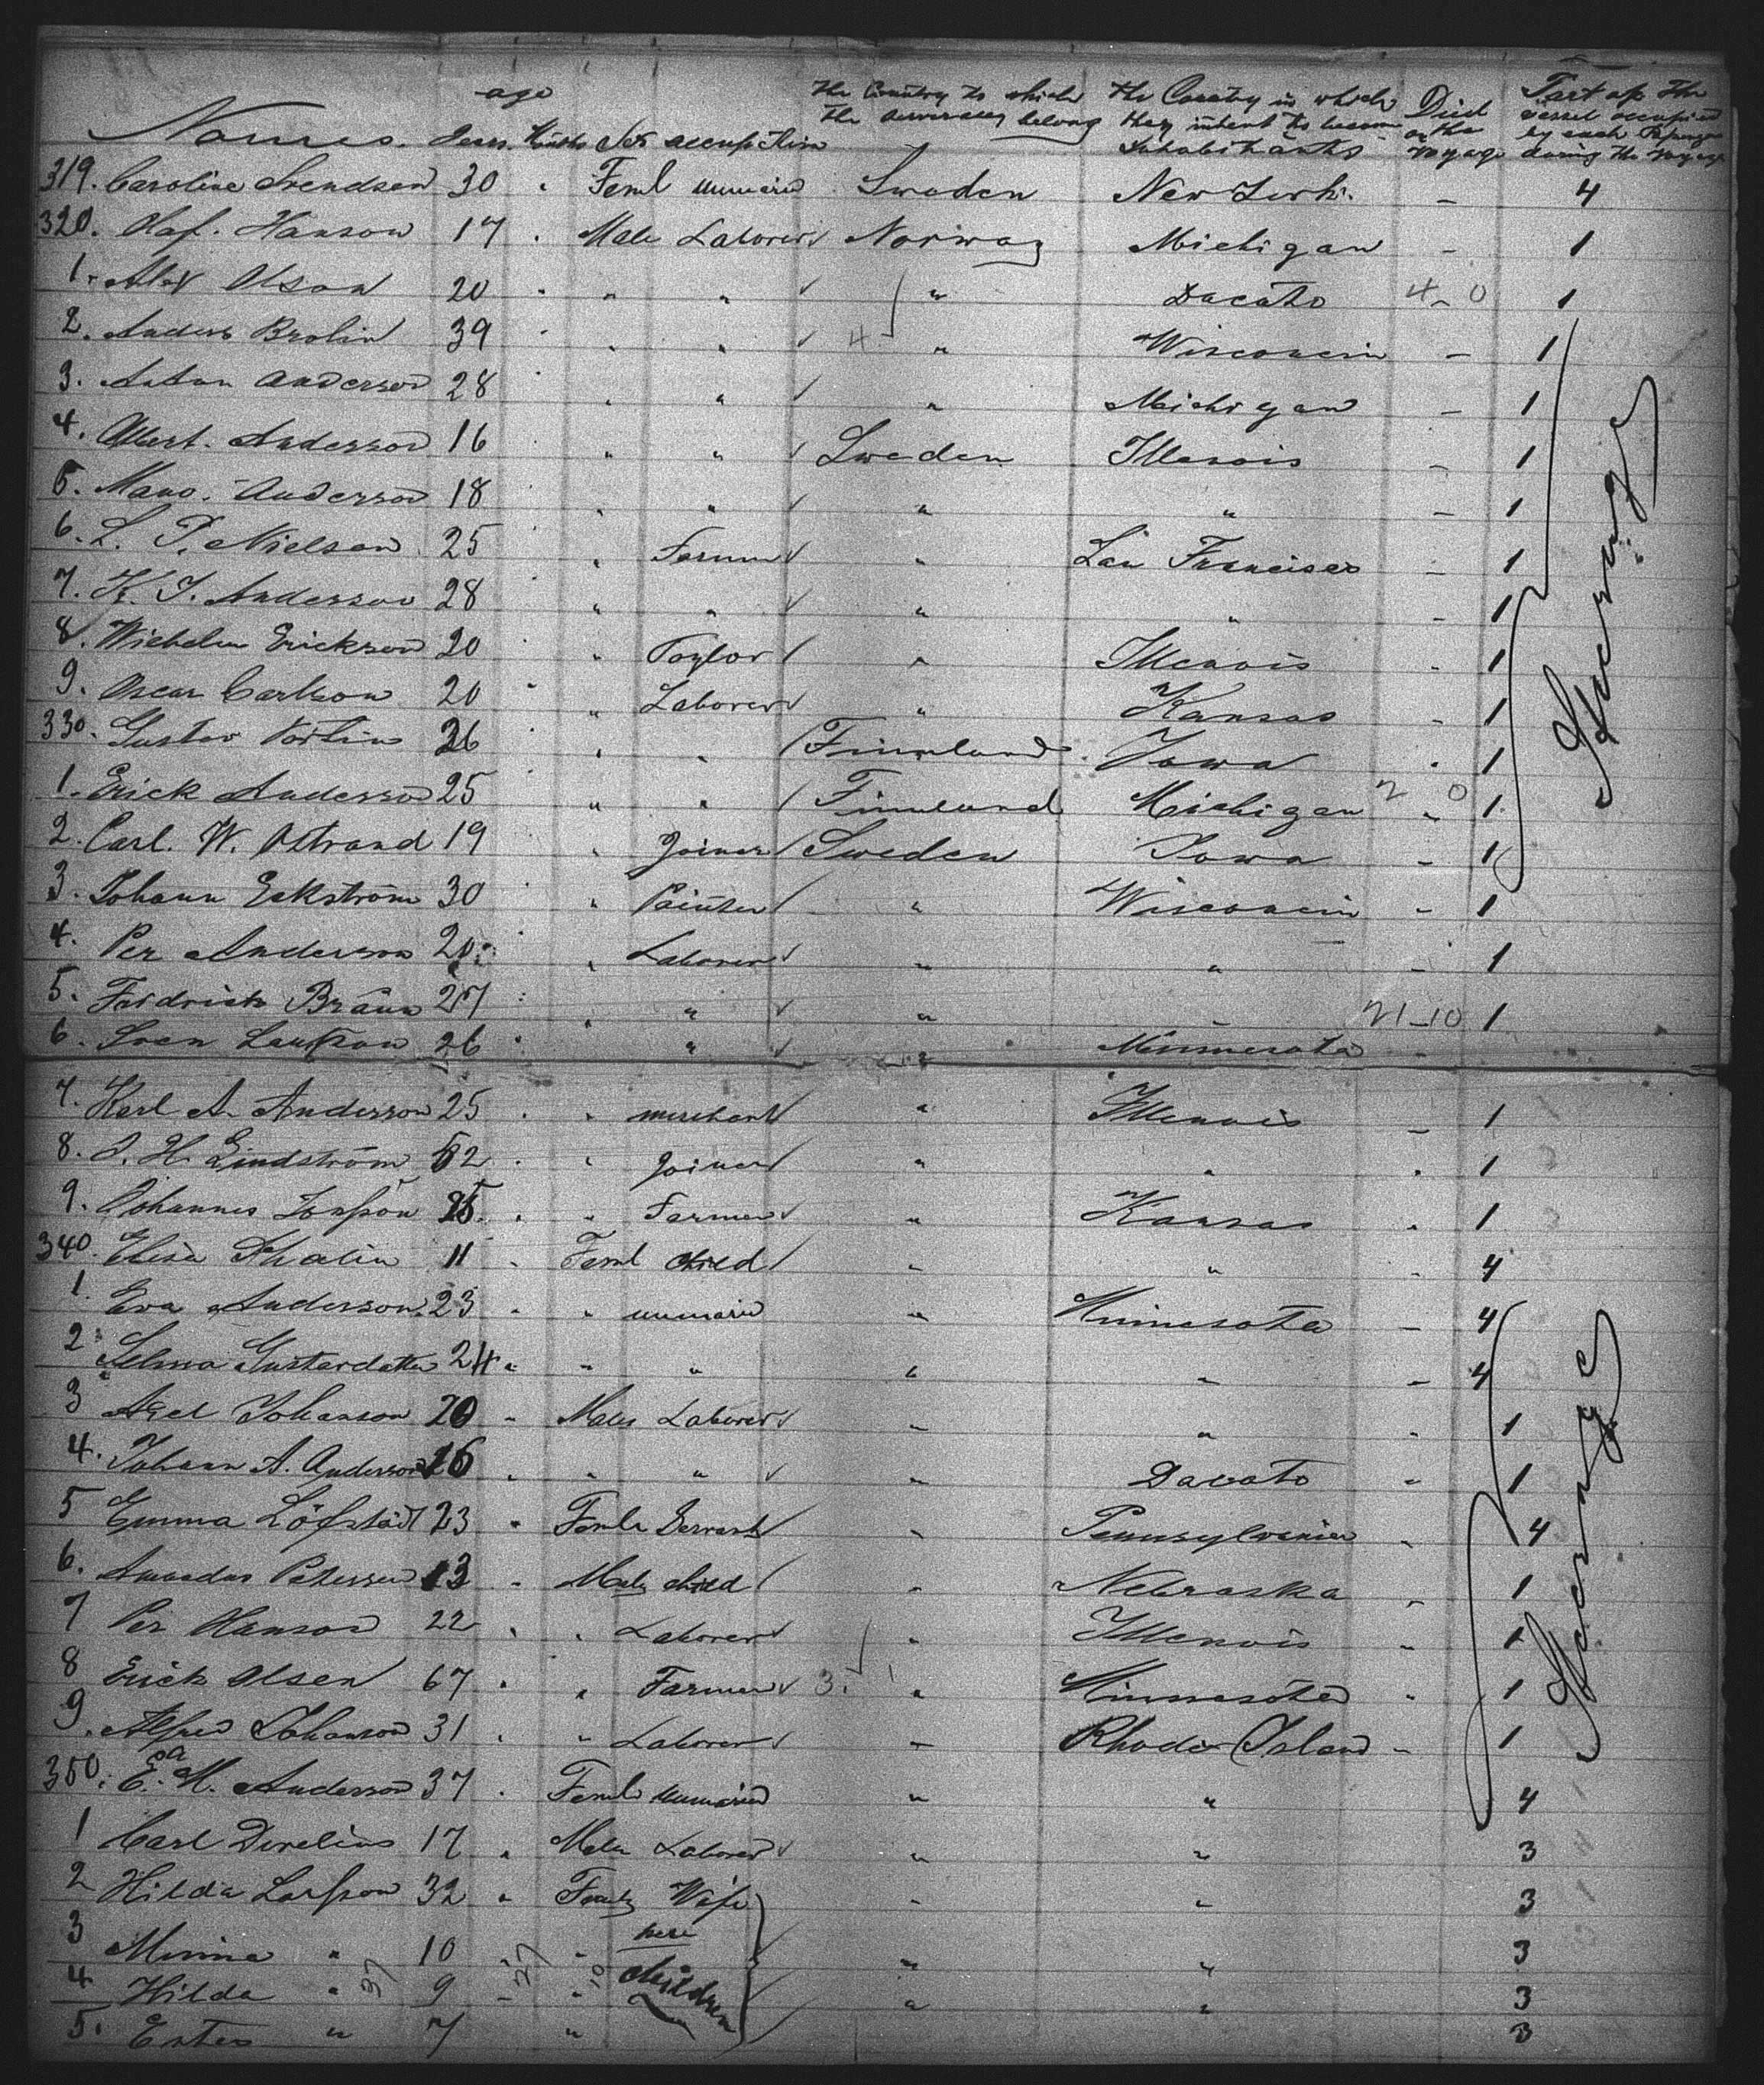 Names. age Years. Months Sex occupation The Country to which the severally belong the Country in which they intend to become Inhabitants Died on the voyage Part of the vessel occupied by each Passenger during the voyage
319. Caroline Svendsen 30 " Feml unmaried Sweden New York. - 4
320. Olaf. Hanson 17 " Male Laborer Norway Michigan - 1
1. Alex Olson 20 " " " " Dacoto 4-0 1
2. Anders Brolin 39 " " " 4 " Wisconsin - 1
3. Anton Anderson 28 " " " Michigan - 1
4. Albert. Anderson 16 " " Sweden Illenois - 1
5. Mano. Anderson 18 " " " " - 1
6. L. P. Nielson 25 " Farmer " San Francisco - 1
7. K. J. Anderson 28 " " " " - 1
8. Wilhelm Erickson 20 " Taylor " Illenois - 1
9. Oscar Carlson 20 " " Laborer " Kansas - 1
330. Gustav 26 " " Finnland Iowa - 1
1. Erick Anderson 25 " " Finnland Michigan 2 " 0 1
2. Carl. W. Ostrand 19 " Joiner Sweden Iowa - 1
3. Johann Eckström 30 " Painter " Wisconsin - 1
4. Per Anderson 20 " Laborer " " - 1
5. Fridrick Braun 27 " " " - 21-10 1
6. Sven 26 " " " Minnesota -
7. Karl A. Anderson 25 " " merchant " Illenois - 1
8. J. H. Lindström 52 " " Joiner " " " 1
9. Johannes 25 " " Farmer " Kansas " 1
340. Elisa Thalin 11 " Feml child " " - 4
1. Eva Anderson 23 " " unmaried " Minnesota - 4
2 Selma Gustavdatter 24 " " " " " - 4
3 Axel Johanson 20 " Male Laborer " " - 1
4. Johann A. Anderson 16 " " " " Dacoto - 1
5 Emma Löfstädt 23 " Femle Servant " Pennsylvania - 4
6. Amandus Peterson 13 " Male child " Nebraska - 1
7 Per Hanson 22 " " Laborer " Illenois " 1
8 Erick Olsen 67 " " Farmer 3. " Minnesota " 1
9. Alfred Johanson 31 " " Laborer " Rhode Island - 1
350. E. M. Anderson 37 " Feml unmaried " " 4
1 Carl 17 " Male Laborer " " 3
2 Hilda 32 " Femle Wife " " 3
3 Minna " 10 " " here " " 3
4 Hilda " 37 9 - 27 " 10 children " " 3
5. Ester " 7 " 3
Steerage
Steerage